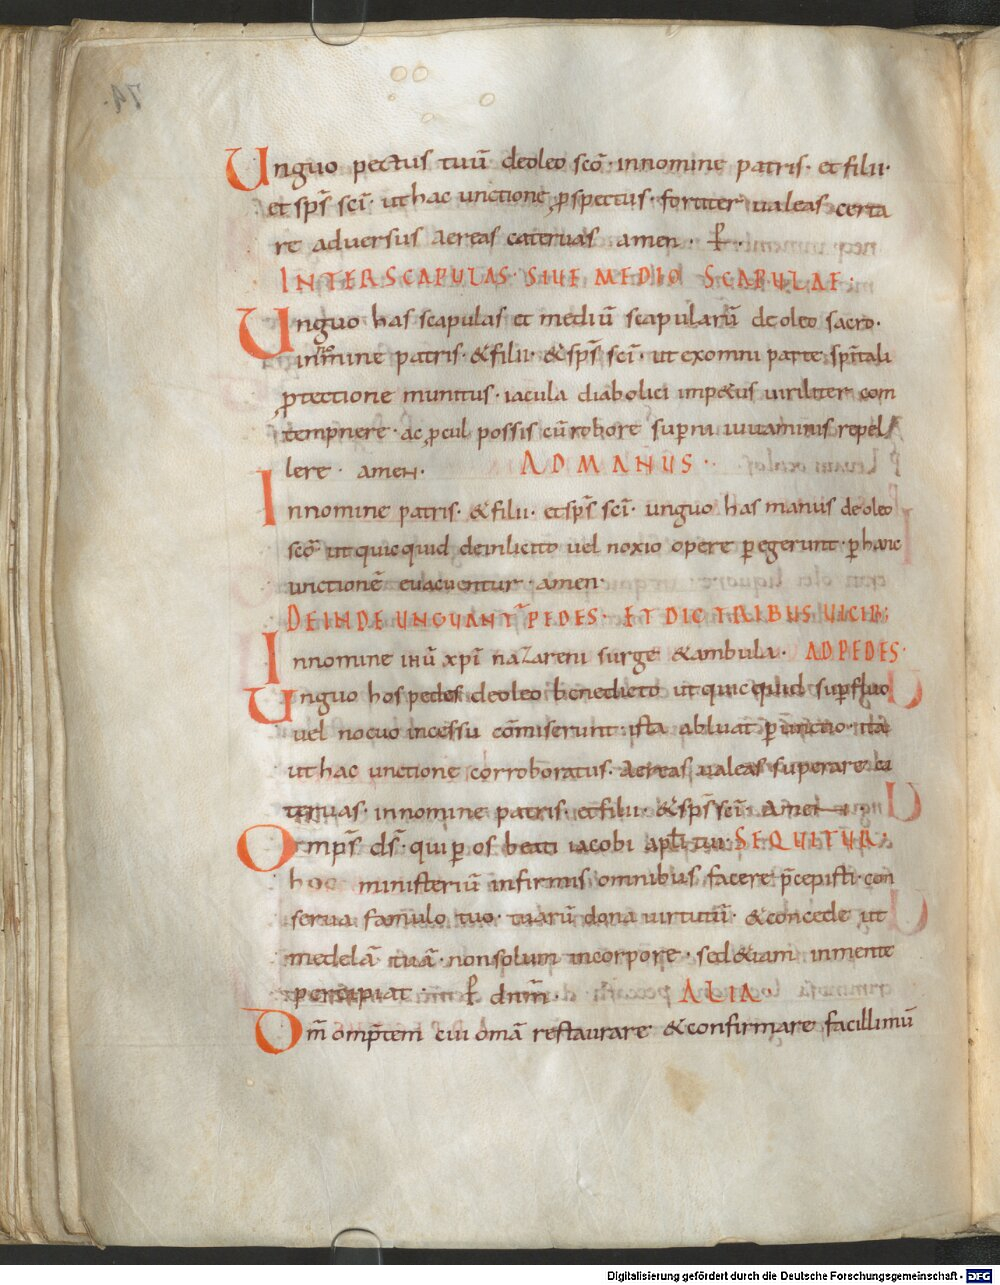 Unguo pectus tuū de oleo scō · in nomine patris · et filii ·
et sps̄ scī · ut hac unctione ꝓspectus · fortiter ualeas certa
re aduersus aereas cateruas amen · P̄ ·
INTER SCAPULAS · SIUE MEDIO SCAPULAE ·
Unguo has scapulas et mediū scapularū de oleo sacro ·
in nomine patris · & filii · & sps̄ scī · ut ex omni parte spīitali
ꝓtectione munitus · iacula diabolici imp&us uiriliter com
tempnere · ac ꝓcul possis cū robore sup̄ni iuuaminis repel
lere · amen · AD MANUS ·
In nomine patris · & filii · et sps̄ scī · unguo has manus de oleo
scō · ut quicquid de inlicito uel noxio opere ꝑegerunt · ꝑ hanc
unctionē euacuentur · amen ·
DEINDE UNGUANT̄ PEDES · ET DIC TRIBUS UICIB;
In nomine ihū xp̄i nazareni surge & ambula · AD PEDES ·
Unguo hos pedes de oleo benedicto ut quicquid sup̄fluo
uel nocuo incessu cōmiserunt · ista abluat ꝑunctio · ita
ut hac unctione corroboratus · aereas ualeas superare ca
teruas · in nomine patris · et filii · & sps̄ scī · Amen
Omps̄ ds̄ · qui ꝑ os beati iacobi apłi tui · SEQUITUR ·
hoc ministeriū infirmis omnibus facere p̄cepisti · con
serua famulo tuo · tuarū dona uirtutū · & concede ut
medelā tuā · non solum in corpore · sed &iam in mente
percipiat · P̄ dnm̄ · ALIA ·
Dm̄ omp̄tem cui omā restaurare & confirmare facillimū
74
Digitalisierung gefördert durch die Deutsche Forschungsgemeinschaft - DFG